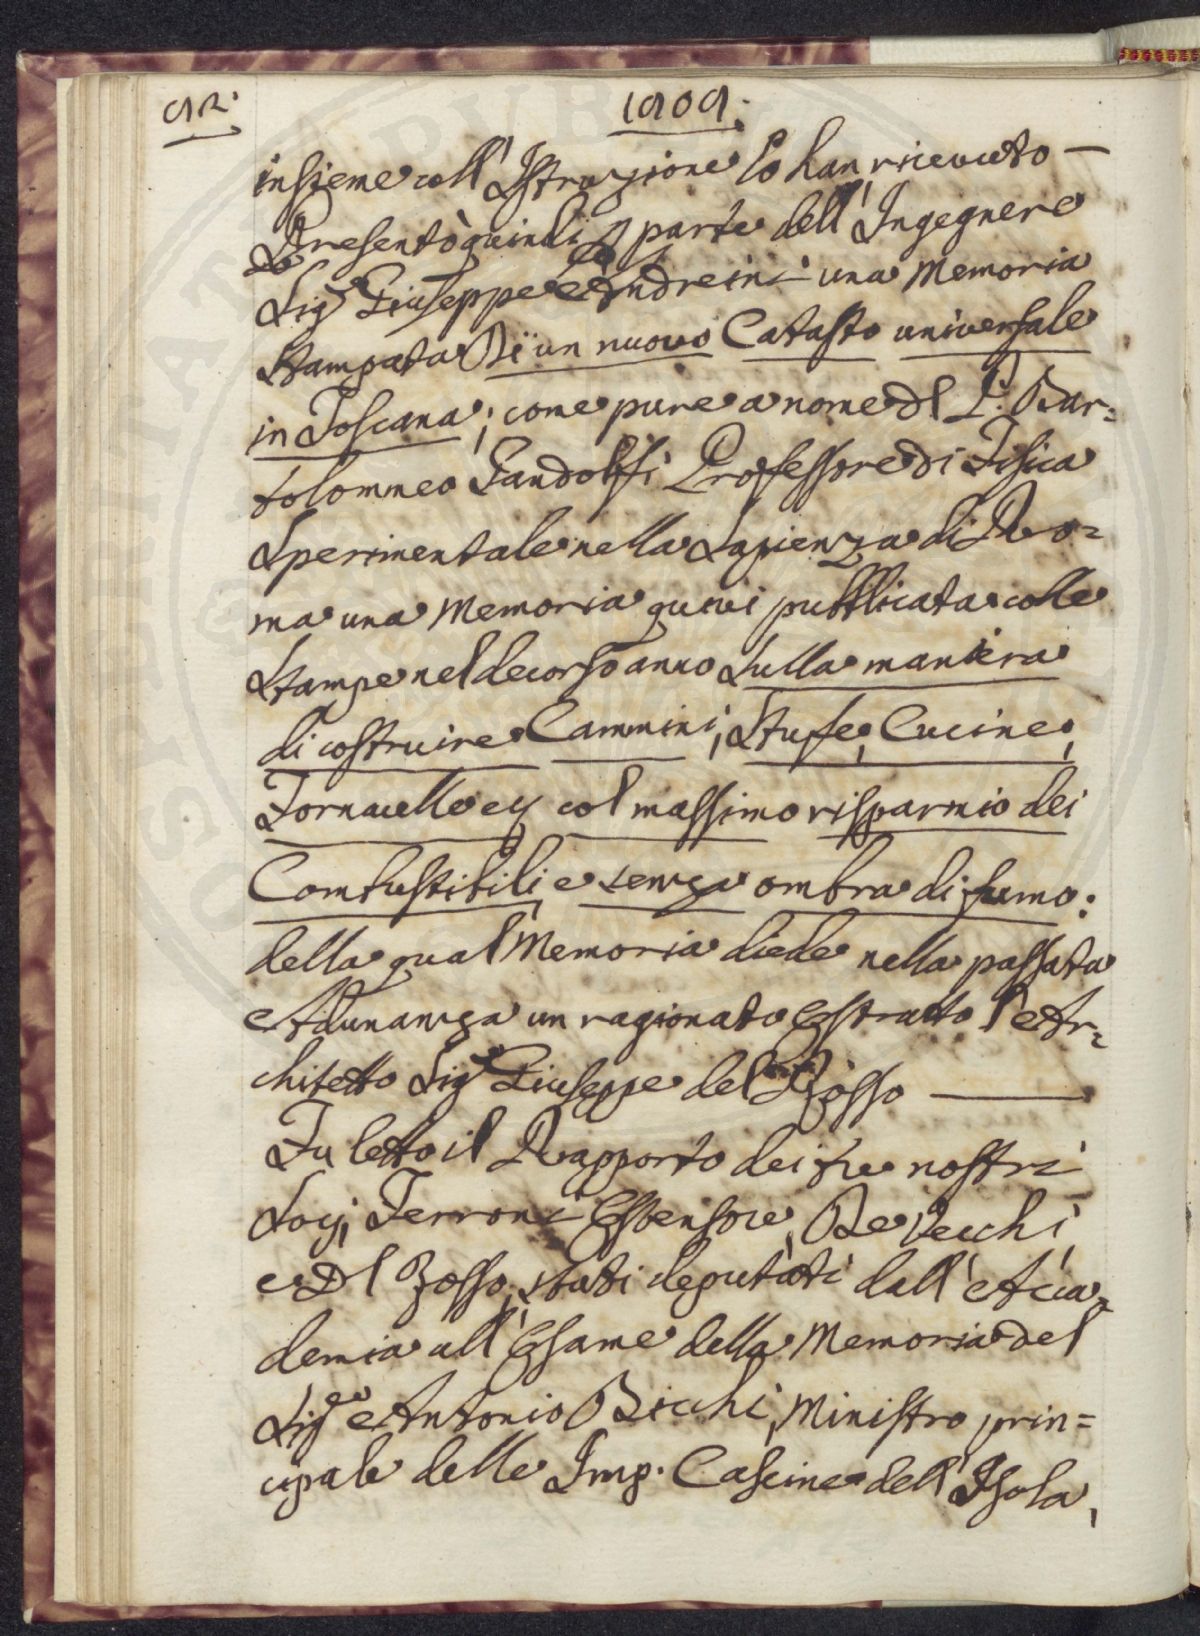 92.
1809.
insieme coll'Istruzione lo han ricevuto —
Presentò quindi p parte dell'Ingegnere
Sig.r Giuseppe Andreini una Memoria
stampata Di un nuovo Catasto universale
in Toscana; come pure a nome dl P. Bar=
tolommeo Gandolfi Professore di Fisica
Sperimentale nella Sapienza di Ro=
ma una Memoria quivi pubblicata colle
Stampe nel decorso anno sulla maniera
di costruire Cammini, Stufe, Cucine,
Fornacelle ec col massimo risparmio dei
Combustibili, e senza ombra di fumo:
della qual Memoria diede nella passata
Adunanza un ragionato Estratto l'Ar=
chitetto Sig.r Giuseppe del Rosso —
Fu letto il Rapporto dei tre nostri
Socj, Ferroni Estensore, De Vecchi,
e Dl Rosso, stati deputati dall'Acca=
demia all'Esame della Memoria del
Sig.re Antonio Bicchi, Ministro prin=
cipale delle Imp. Cascine dell'Isola,